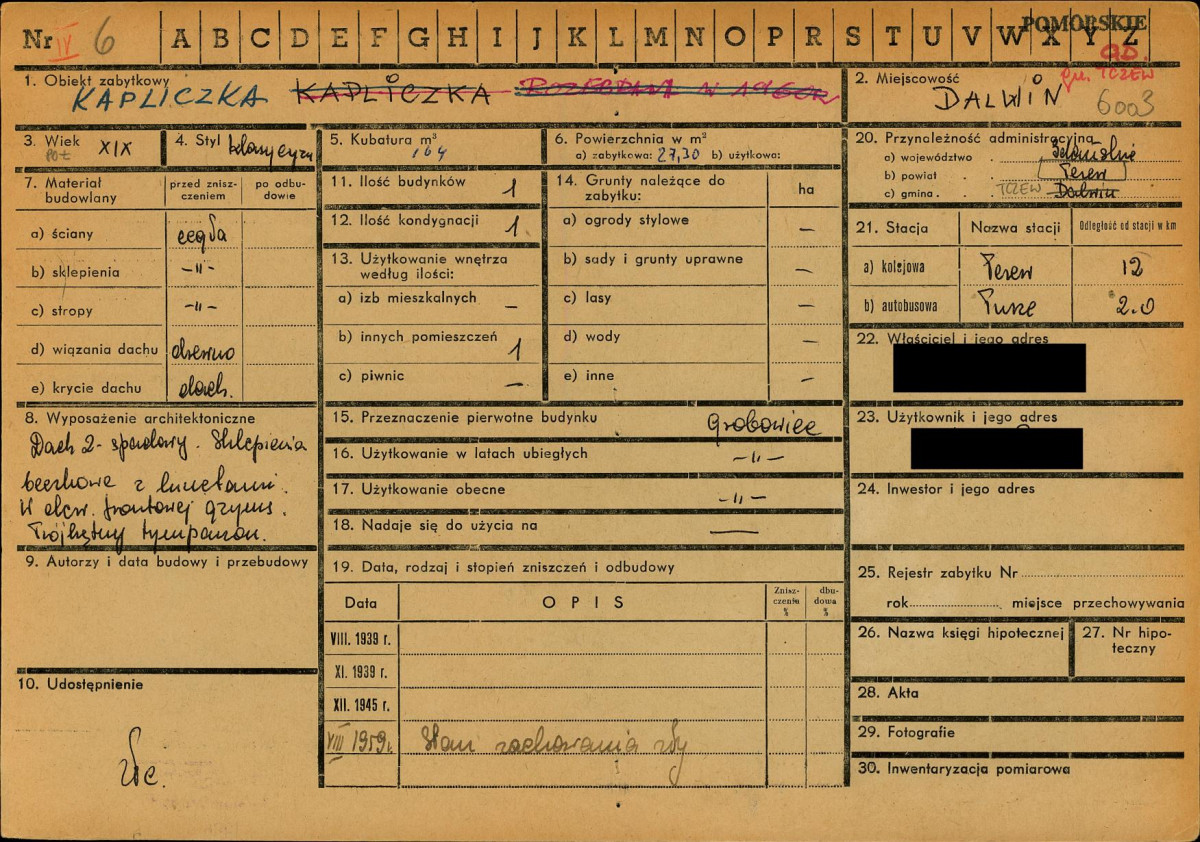 POMORSKIE
Nr IV 6 A B C D E F G H I J K L M N O P R S T U V W X Y Z
gm. TCZEW
1. Obiekt zabytkowy
KAPLICZKA KAPLICZKA ROZEBRANA W 1960R
2. Miejscowość
DALWIN 6003
3. Wiek XIX
POŁ
4. Styl klasycyzm
5. Kubatura m³
164
6. Powierzchnia w m²
a) zabytkowa: 27,30 b) użytkowa:
20. Przynoleżność administracyjna
a) województwo . Gdańskie
b) powiat . . Tczew
c) gmina . . TCZEW Dalwin
7. Materiał budowlany
przed znisz-
czeniem
po odbu-
dowie
a) ściany cegła
b) sklepienia -"-
c) stropy -"-
d) wiązania dachu drewno
e) krycie dachu dach.
11. Ilość budynków 1
12. Ilość kondygnacji 1
13. Użytkowanie wnętrza
według ilości:
a) izb mieszkalnych –
b) innych pomieszczeń 1
c) piwnic –
14. Grunty należące do
zabytku:
ha
a) ogrody stylowe –
b) sady i grunty uprawne –
c) lasy –
d) wody –
e) inne –
21. Stacja Nazwa stacji Odległość od stacji w km
a) kolejowa Tczew 12
b) autobusowa Turze 2.0
22. Właściciel i jego adres
23. Użytkownik i jego adres
24. Inwestor i jego adres
8. Wyposażenie architektoniczne
Dach 2-spadowy. Sklepienia
beczkowe z lunetami.
W elew. frontowej gzyms.
Trójkątny tympanon.
15. Przeznaczenie pierwotne budynku Grobowiec
16. Użytkowanie w latach ubiegłych -"-
17. Użytkowanie obecne -"-
18. Nadaje się do użycia na —
9. Autorzy i data budowy i przebudowy
10. Udostępnienie
19. Data, rodzaj i stopień zniszczeń i odbudowy
Data OPIS
Znisz-
czenia
%
dbu-
dowa
%
VIII. 1939 r.
XI. 1939 r.
XII. 1945 r.
VIII 1959 r. Stan zachowania zły
25. Rejestr zabytku Nr
rok miejsce przechowywania
26. Nazwa księgi hipotecznej
27. Nr hipo-
teczny
28. Akta
29. Fotografie
30. Inwentaryzacja pomiarowa